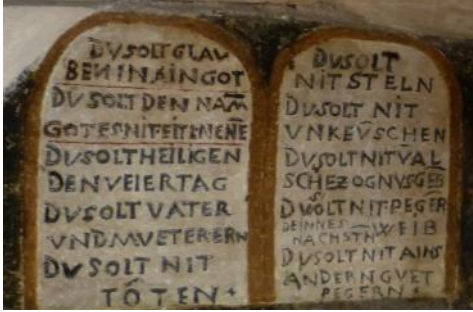 DVSOLTGLAV
BENINAINGOT
DVSOLTDENNAM̄
GOTESNITEITLNENĒ
DVSOLTHEILIGEN
DENVEIERTAG
DVSOLTVATER
VNDMVETERERN
DV SOLT NIT
TÖTEN+
DVSOLT
NITSTELN
DVSOLT NIT
VNKEV̄SCHEN
DVSOLTNITV̄AL
SCHEZOGNVSGEB
DVSOLTNIT·PEGER
DEINNES
NACHSTN̄ WEIB
DVSOLTNITAINS
ANDERNGVET
PEGERN+